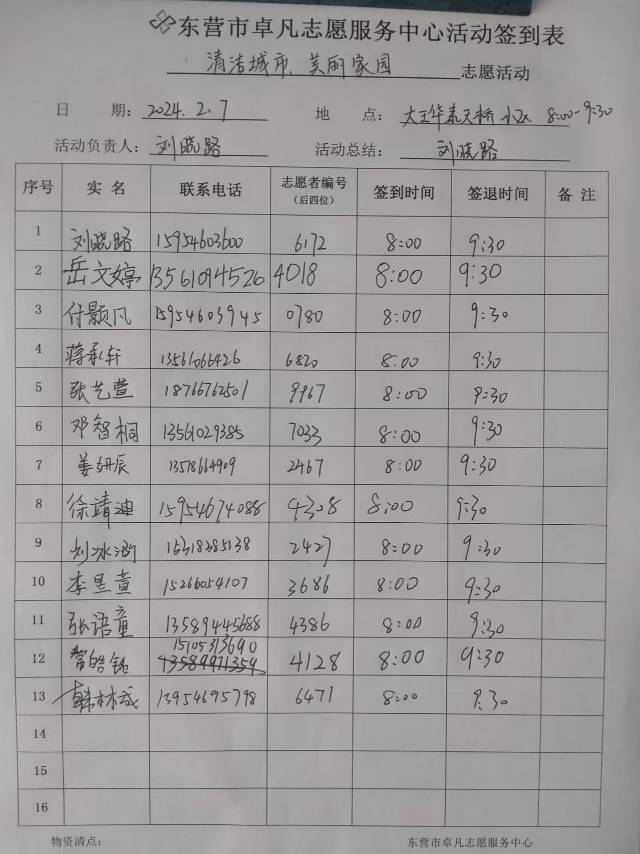 东营市卓凡志愿服务中心活动签到表
清洁城市、美丽家园 志愿活动
日 期：2024.2.7 地 点：大王华泰天桥小区 8:00-9:30
活动负责人：刘晓路 活动总结：刘晓路
序号 实 名 联系电话 志愿者编号（后四位） 签到时间 签退时间 备 注
1 刘晓路 15954603600 6172 8:00 9:30
2 岳文婷 13561094526 4018 8:00 9:30
3 付颢凡 15954603945 0780 8:00 9:30
4 蒋承轩 13561066426 6820 8:00 9:30
5 张艺萱 18766762501 9967 8:00 9:30
6 邓智桐 13561029385 7033 8:00 9:30
7 姜妍辰 13518664909 2467 8:00 9:30
8 徐靖迪 15954674088 4308 8:00 9:30
9 刘冰涵 2427 8:00 9:30
10 李昱萱 15266054107 3686 8:00 9:30
11 张语童 13589445688 4386 8:00 9:30
15105313690
12 常皓铭 13589971359 4128 8:00 9:30
13 韩林成 13954695798 6471 8:00 9:30
14
15
16
物资清点： 东营市卓凡志愿服务中心